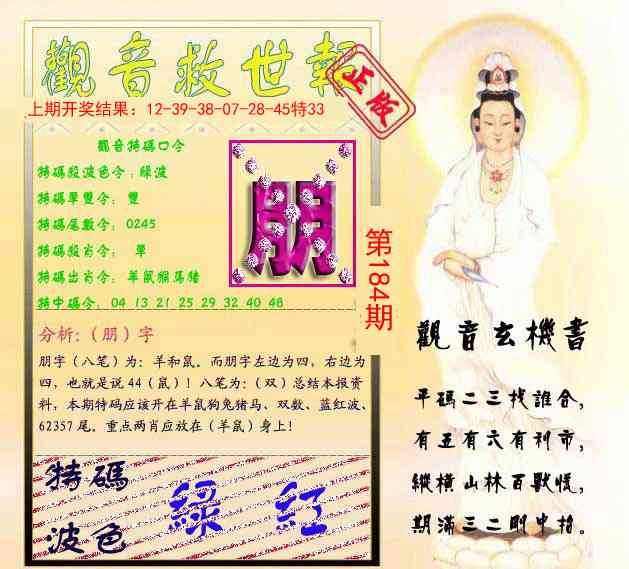 觀音救世報
正版
上期开奖结果：12-39-38-07-28-45特33
觀音特碼口令
特碼殺波色令：綠波
特碼單雙令： 雙
特碼尾數令： 0245
特碼殺肖令： 單
特碼出肖令：羊鼠猴馬豬
特中碼令： 04 13 21 25 29 32 40 48
朋
第184期
分析:（朋）字
朋字（八笔）为：羊和鼠。而朋字左边为四，右边为
四，也就是说 44（鼠）！八笔为：（双）总结本报资
料，本期特码应该开在羊鼠狗兔猪马、双数、蓝红波、
62357 尾。重点两肖应放在（羊鼠）身上！
特碼
波色
綠 紅
觀音玄機書
平碼二三找誰合，
有五有六有利市，
縱橫山林百獸慌，
期滿三二剛中格。